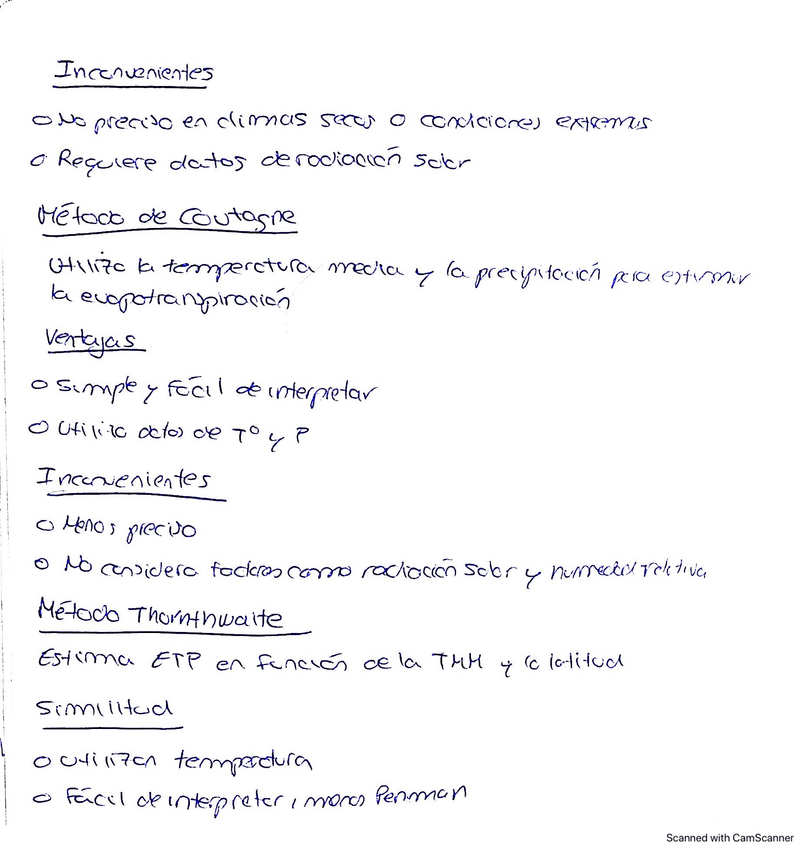 Inconvenientes
o No preciso en climas secos o condiciones extremas
o Requiere datos de radiación solar
Método de Coutagne
Utiliza la temperatura media y la precipitación para estimar
la evapotranspiración
Ventajas
o Simple y Fácil de interpretar
o Utiliza datos de T° y P
Inconvenientes
o Menos preciso
o No considera factores como radiación solar y humedad relativa
Método Thornthwaite
Estima ETP en función de la TMM y la latitud
Similitud
o Utilizan temperatura
o Fácil de interpretar, menos Penman
Scanned with CamScanner